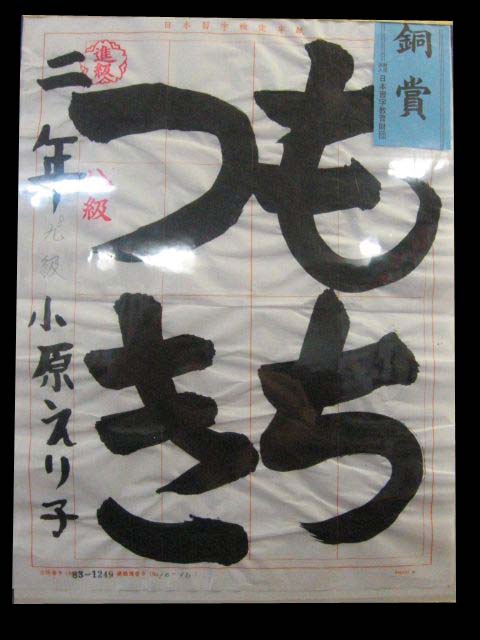 日本習字検定半紙
銅賞
日本習字教育財団
もち
つき
進級
八級
二年
九級
小原えり子
83-1249